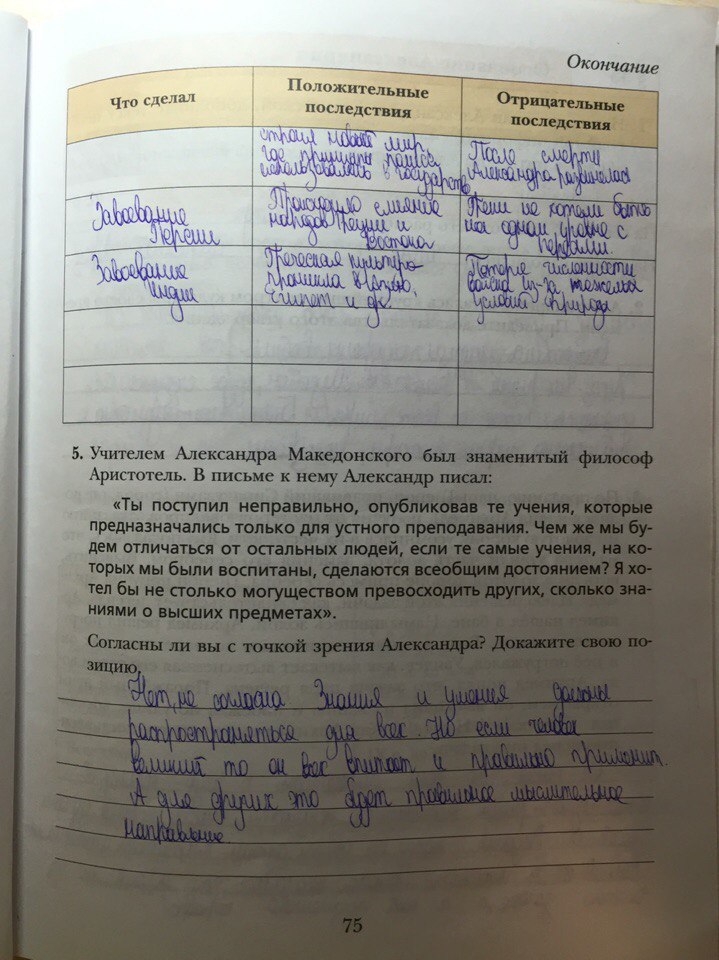 Окончание
Что сделал
Положительные
последствия
Отрицательные
последствия
строил новый мир,
где принципы полиса
использовались в государстве
После смерти
Александра развилелась
Завоевание
Персии
Происходило слияние
народов Греции и
Востока
Греки не хотели быть
на одном уровне с
персами.
Завоевание
Индии
Греческая культура
проникла в Индию,
Египет и др.
Потеря численности
войска из-за тяжелых
условий природы
5. Учителем Александра Македонского был знаменитый философ
Аристотель. В письме к нему Александр писал:
«Ты поступил неправильно, опубликовав те учения, которые
предназначались только для устного преподавания. Чем же мы бу-
дем отличаться от остальных людей, если те самые учения, на ко-
торых мы были воспитаны, сделаются всеобщим достоянием? Я хо-
тел бы не столько могуществом превосходить других, сколько зна-
ниями о высших предметах».
Согласны ли вы с точкой зрения Александра? Докажите свою по-
зицию.
Нет, не согласна Знания и умения должны
распространяться для всех. Но если человек
великий то он всё впитает и правильно применит.
А для других это будет правильное мыслительное
направление.
75